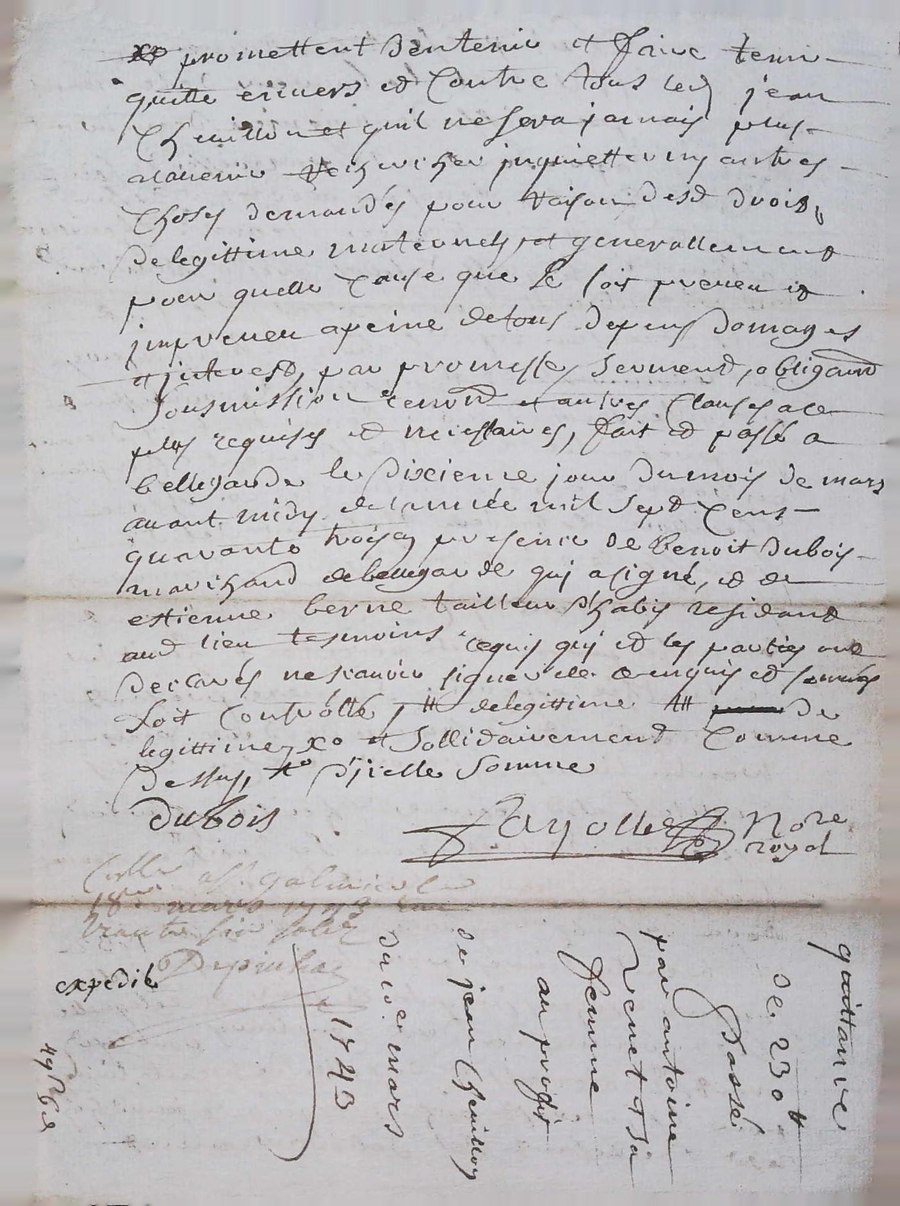 promettent d'entenir et faire tenir
quitte envers et contre tous led jean
Cheuillon et quil ne sera jamais plus
alavenir recherche inquietté ny autres
choses demandés pour raison desd droits
de legittime maternels et generallement
pour quelle cause que se soit preveu et
impreveu a peine de tous depens domages
et interest, par promesse, serment, obligaōn
sousmission renonōn et autres clauses a ce
plus requises et necessaires, fait et passé a
bellegarde le dixieme jour du mois de mars
avant midy de lannée mil sept cens
quarante trois en presence de benoit dubois
marchand de bellegarde qui a signé, et de
estienne berne tailleur d'habis residant
aud lieu tesmoins requis qui et les parties ont
declarés ne scavoir signer de ce enquis et sommés
soit controllé, # de legittime ## de
legittime, xo et sollidairement comme
dessus, d'icelle somme
dubois
Fayolle Nore
royal
Collé a st galmier le
18e mars 1743
trente six sols
expedié
quittance
de 230 tt
passée
par antoine
et sa
femme
au profit
de jean Cheuillon
du 10e mars
1743